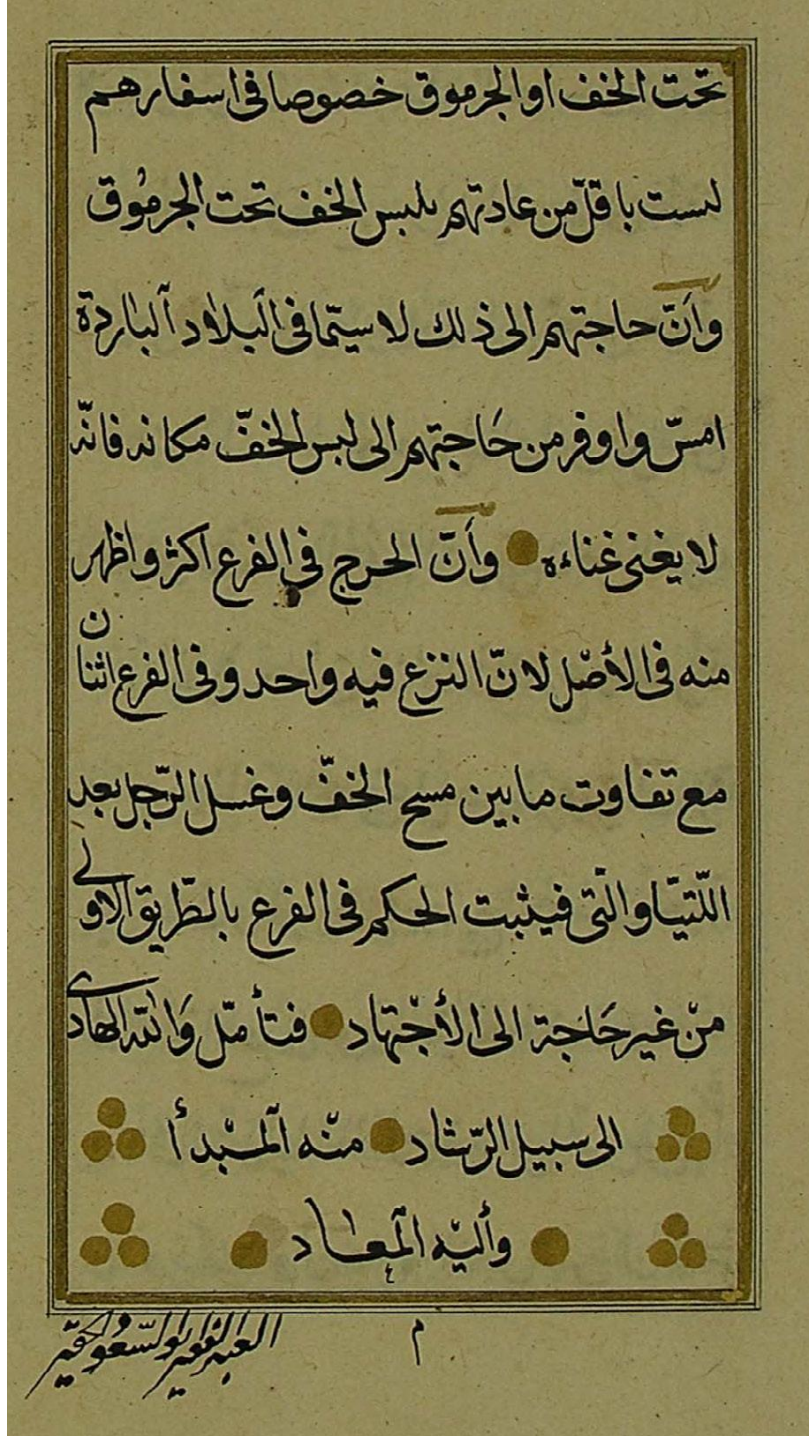 تحت الخف او الجرموق خصوصا فى اسفارهم
ليست باقلّ من عادتهم بلبس الخف تحت الجرمُوق
وأنّ حاجتهم الى ذلك لا سيّما فى البلاد الباردة
امسّ واوفر من حَاجتهم الى لبس الخفّ مكانه فانّه
لا يغنى غناءه وأنّ الحرج فى الفرع اكثر واظهر
منه فى الأصْل لانّ النزع فيه واحد وفى الفرع اثنان
مع تفاوت ما بين مسح الخفّ وغسل الرّجل بعد
اللّتيّا والّتى فيثبت الحكم فى الفرع بالطّريق الاولى
منْ غير حَاجة الى الأجْتهاد فتأمّل وَالله الهادى
الى سبيل الرّشاد منْه المبْدأ
وأليْه المعاد
م
العبد الفقير ابو السّعود الحقير